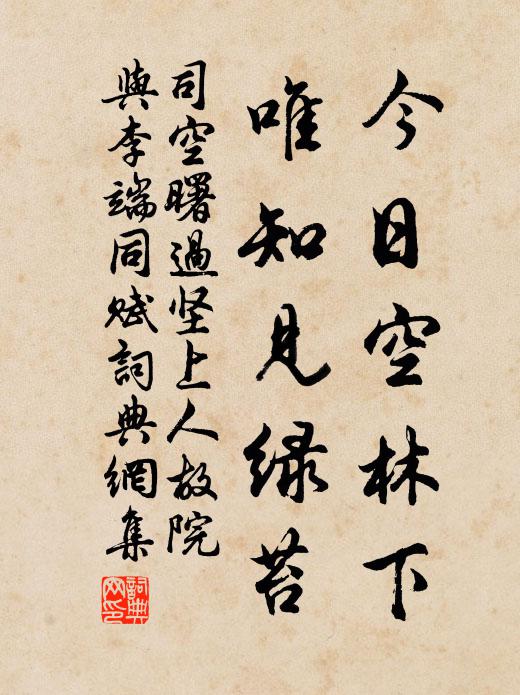 今日空林下
唯知見绿苔
司空曙過坚上人故院
與李端同赋詞典網集
詞典
网印